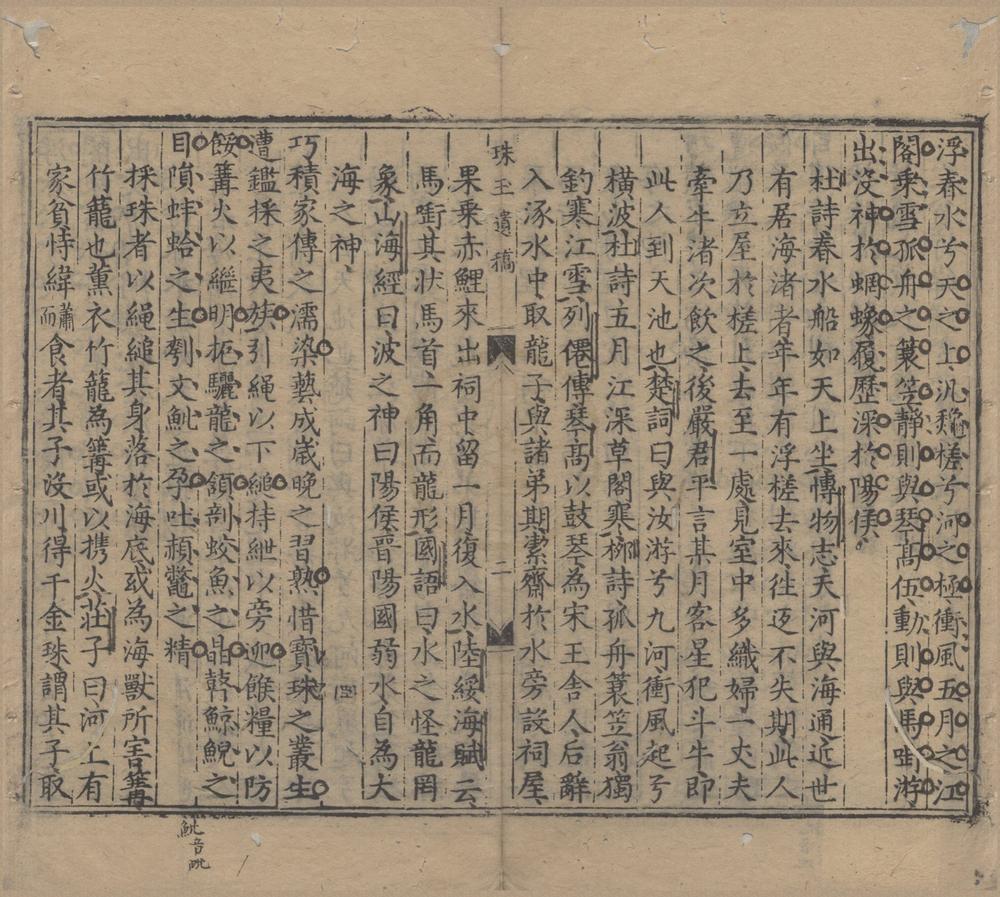 浮春水兮天之上汎魏槎兮河之極衝風五月之江
閣乘雪孤舟之蓑笠靜則與琴高伍動則與馬啣游
出没神於蜩蟓履歷深於陽侯
杜詩春水船如天上坐愽物志天河與海通近世
有居海渚者年年有浮槎去來徃迈不失期此人
乃立屋於槎上去至一處見室中多織婦一丈夫
牽牛渚次飲之後嚴君平言某月客星犯斗牛即
此人到天池也楚詞曰與汝游兮九河衝風起兮
橫波杜詩五月江深草閣寒柳詩孤舟蓑笠翁獨
釣寒江雪列僊傳琴高以鼓琴為宋王舍人后辭
入涿水中取龍子與諸弟期潔齋於水旁設祠屋
珠玉遺稿
二
果乘赤鯉來出祠中留一月復入水陸綏海賦云
馬啣其狀馬首一角而龍形國語曰水之怪龍罔
象山海經曰波之神曰陽侯晋陽國弱水自為大
海之神
巧積家傳之濡染藝成歲晚之習熟惜寶珠之叢生
遭鑑採之夷族引繩以下縋持紲以旁迎餱糧以防
餒篝火以繼明扼驪龍之頷剖蛟魚之晶鼓鯨鯢之
目隕蚌蛤之生刳文魮之孕吐頳鼈之精
採珠者以繩縋其身落於海底或為海獸所害篝
竹籠也薰衣竹籠為篝或以携火莊子曰河上有
家貧恃緯蕭而食者其子没川得千金珠謂其子取
魮音毗